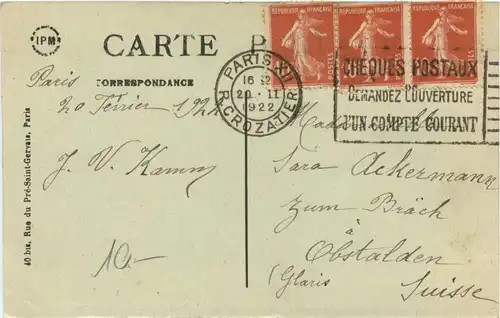 IPM
CARTE P
CORRESPONDANCE
REPUBLIQUE FRANÇAISE
POSTES
REPUBLIQUE FRANÇAISE
POSTES
REPUBLIQUE FRANÇAISE
PARIS XII
16
20 - II
1922
R. CROZATIER
CHEQUES POSTAUX
DEMANDEZ L'OUVERTURE
D'UN COMPTE COURANT
Paris
20 Février 192
J. V. Kamm
10.-
40 bis, Rue du Pré-Saint-Gervais, Paris
Sara Ackermann
zum Bräch
à
Obstalden
(Glaris
Suisse